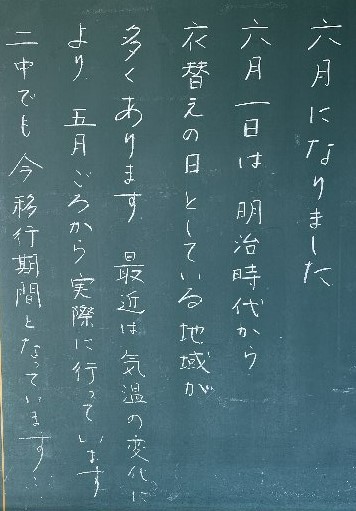 六月になりました
六月一日は 明治時代から
衣替えの日としている地域が
多くあります 最近は気温の変化に
より 五月ごろから実際に行っています
二中でも今移行期間となっています